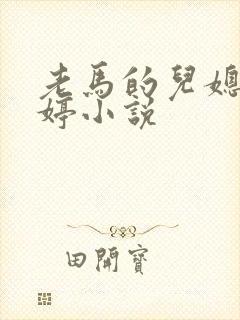 老馬的兒媳
婷小說
田開寶